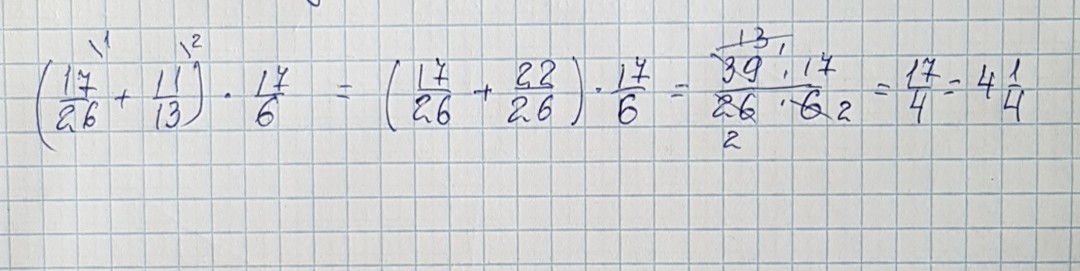 (17/26 \1 + 11/13 \2) · 17/6 = (17/26 + 22/26) · 17/6 = 39 13 1 · 17 / 26 2 · 6 2 = 17/4 = 4 1/4